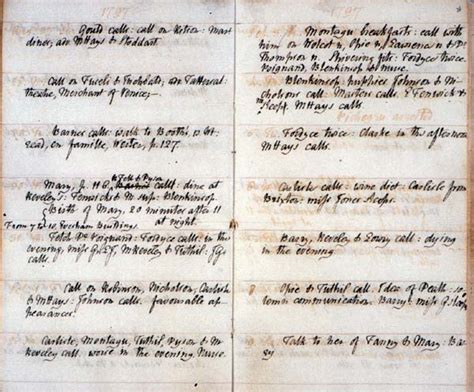 1797
Gould calls: call on Kotion: Mar-
diner, au MHays & Stoddart.
Call on Fuseli & Inchbald, au Tattersal:
theatre, Merchant of Venice
Barner calls: walk to Booth's, o
ead, en famille, p. 127.
Fell & Dyson
Mary, p. 116. call: dine at
Reveley's: Fenwicks & M sup: Blenkinsop.
Birth of Mary, 20 minutes after 11
at night.
From 7 to 10, Evesham Buildings.
Fetch Dr Poignand: Fordyce calls: in the
evening, miss G & LJ, MReveley & Tuthil:
calls
Call on Robinson, Nicholson, Carlisle
& MHays: Johnson calls. favourable ap
pearances.
Carlisle, Montagu, Tuthil, Dyson & M
Reveley call. worse in the evening. Nurse.
1797
Montagu breakfasts: call with
him on Wolcot n, Opie n, Lawrence n & Dr
Thompson n. Shivering fit: Fordyce twice.
Poignand, Blenkinsop & nurse.
Blenkinsop: puppies: Johnson & M
cholson call: Masters calls: E Fenwick &
MHays calls.
Fordyce twice: Clarke in the afternoon
MHays calls.
Carlisle calls: wine diet: Carlisle from
Brixton: miss Jones sleeps.
Barry, Reveley & Lowry call: dying
in the evening.
Opie & Tuthil call. Idea of Death: so-
lemn communication. Barry: miss G sleeps
Talk to her of Fanny & Mary: Bar-
ry